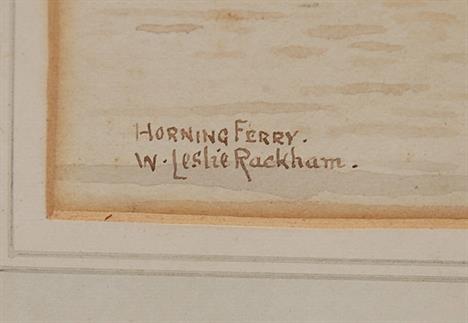 HORNING FERRY.
W. Leslie Rackham.